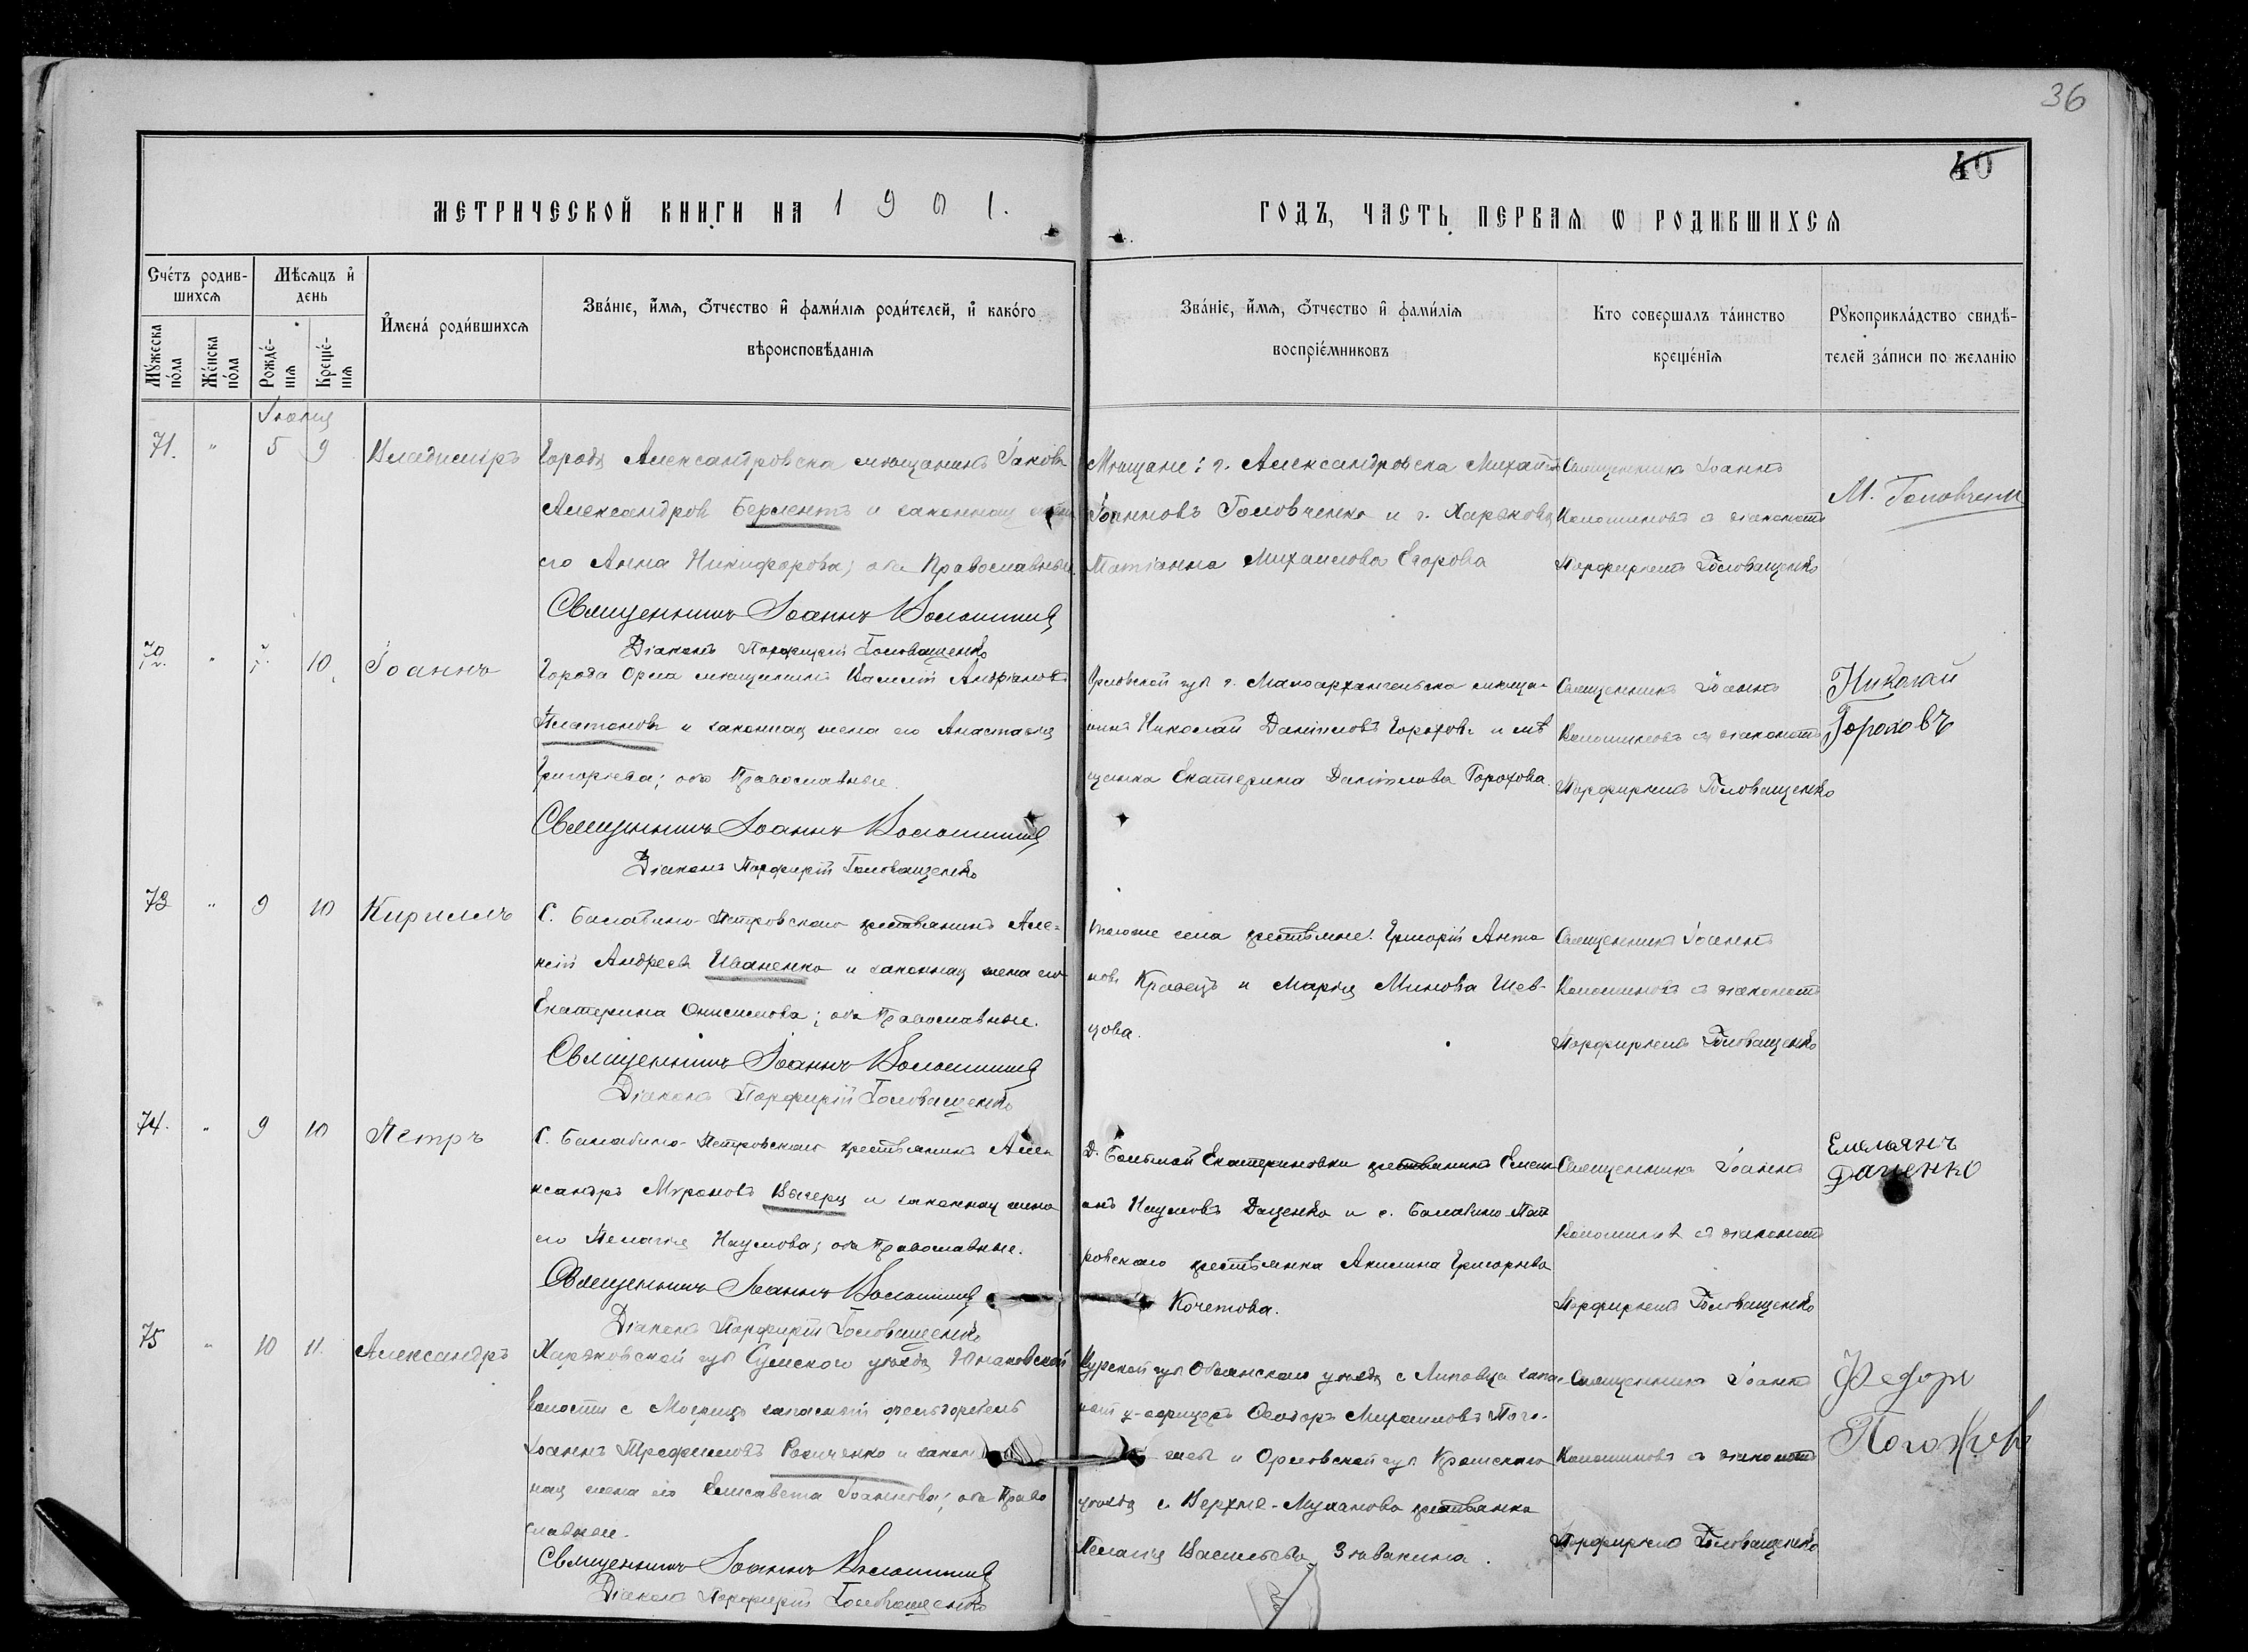 36
40
МЕТРИЧЕСКОЙ КНИГИ НА 1901.
ГОДЪ, ЧАСТЬ ПЕРВАЯ Ѡ РОДИВШИХСЯ
Сче́тъ родив-
шихся
Мѣсяцъ и҆
день
И҆мена́ роди́вшихся
Зва́нїе, и҆́мя, ѻ҆́тчество и҆ фами́лїя роди́телей, и҆ како́го
вѣроисповѣ́данїя
Мꙋ́жеска
по́ла
Же́нска
по́ла
Рожде́-
нїя
Креще́-
нїя
Зва́нїе, и҆́мя, ѻ҆́тчество и҆ фами́лїя
воспрїе́мниковъ
Кто соверша́лъ та́инство
креще́нїя
Рꙋкоприкла́дство свидѣ́-
телей за́писи по жела́нїю
71. " 5 9 Владиміръ
Города Александровска мѣщанинъ Іаковъ
Александровъ Берлентъ и законная жена
его Анна Никифорова; оба Православные.
Священникъ Іоаннъ
Діаконъ Порфирій Головащенко
Мѣщане: г. Александровска Михаилъ
Іоанновъ Головченко и г. Харькова
Татіанна Михаилова Егорова
Священникъ Іоаннъ
съ діакономъ
Порфиріемъ Головащенко
М. Головченко
72. " 7. 10 Іоаннъ
Города Орла мѣщанинъ Василій Андріановъ
Платоновъ и законная жена его Анастасія
Григорьева; оба Православные.
Священникъ Іоаннъ
Діаконъ Порфирій Головащенко
Орловской губ г. Малоархангельска мѣща-
нинъ Николай Даніиловъ Гороховъ и мѣ
щанка Екатерина Даніилова Горохова.
Священникъ Іоаннъ
съ діакономъ
Порфиріемъ Головащенко
Николай
Гороховъ
73 " 9 10 Кириллъ
С. Балабино-Петровскаго крестьянинъ Але-
ксій Андреевъ Иваненко и законная жена его
Екатерина Онисимова; оба Православные.
Священникъ Іоаннъ
Діаконъ Порфирій Головащенко
Тогоже села крестьяне: Григорій Анто
новъ Кравецъ и Марія Минова Шев-
цова.
Священникъ Іоаннъ
съ діакономъ
Порфиріемъ Головащенко
74. " 9 10 Петръ
С. Балабино-Петровскаго крестьянинъ Але
ксандръ Мироновъ и законная жена
его Пелагія Наумова; оба Православные.
Священникъ Іоаннъ
Діаконъ Порфирій Головащенко
Д. Большой Екатериновки крестьянинъ Емель
анъ Наумовъ Даценко и с. Балабино-Пет
ровскаго крестьянка Акилина Григорьева
Кочетова.
Священникъ Іоаннъ
съ діакономъ
Порфиріемъ Головащенко
Емельянъ
Даценко
75 " 10 11. Александръ
Харьковской губ Сумского уѣзда Юнаковской
волости с Могрица запасный фельдфебель
Іоаннъ Трофимовъ и закон
ная жена его Елисавета Іоаннова; оба Право
славные.
Священникъ Іоаннъ
Діаконъ Порфирій Головащенко
Курской губ Обоянскаго уѣзда с Липовца запас
ный у-офицеръ Ѳеодоръ Михаиловъ Пого-
и Орловской губ Кромскаго
уѣзда с. Верхне-Муханова крестьянка
Пелагія Васильева
Священникъ Іоаннъ
съ діакономъ
Порфиріемъ Головащенко
Федоръ